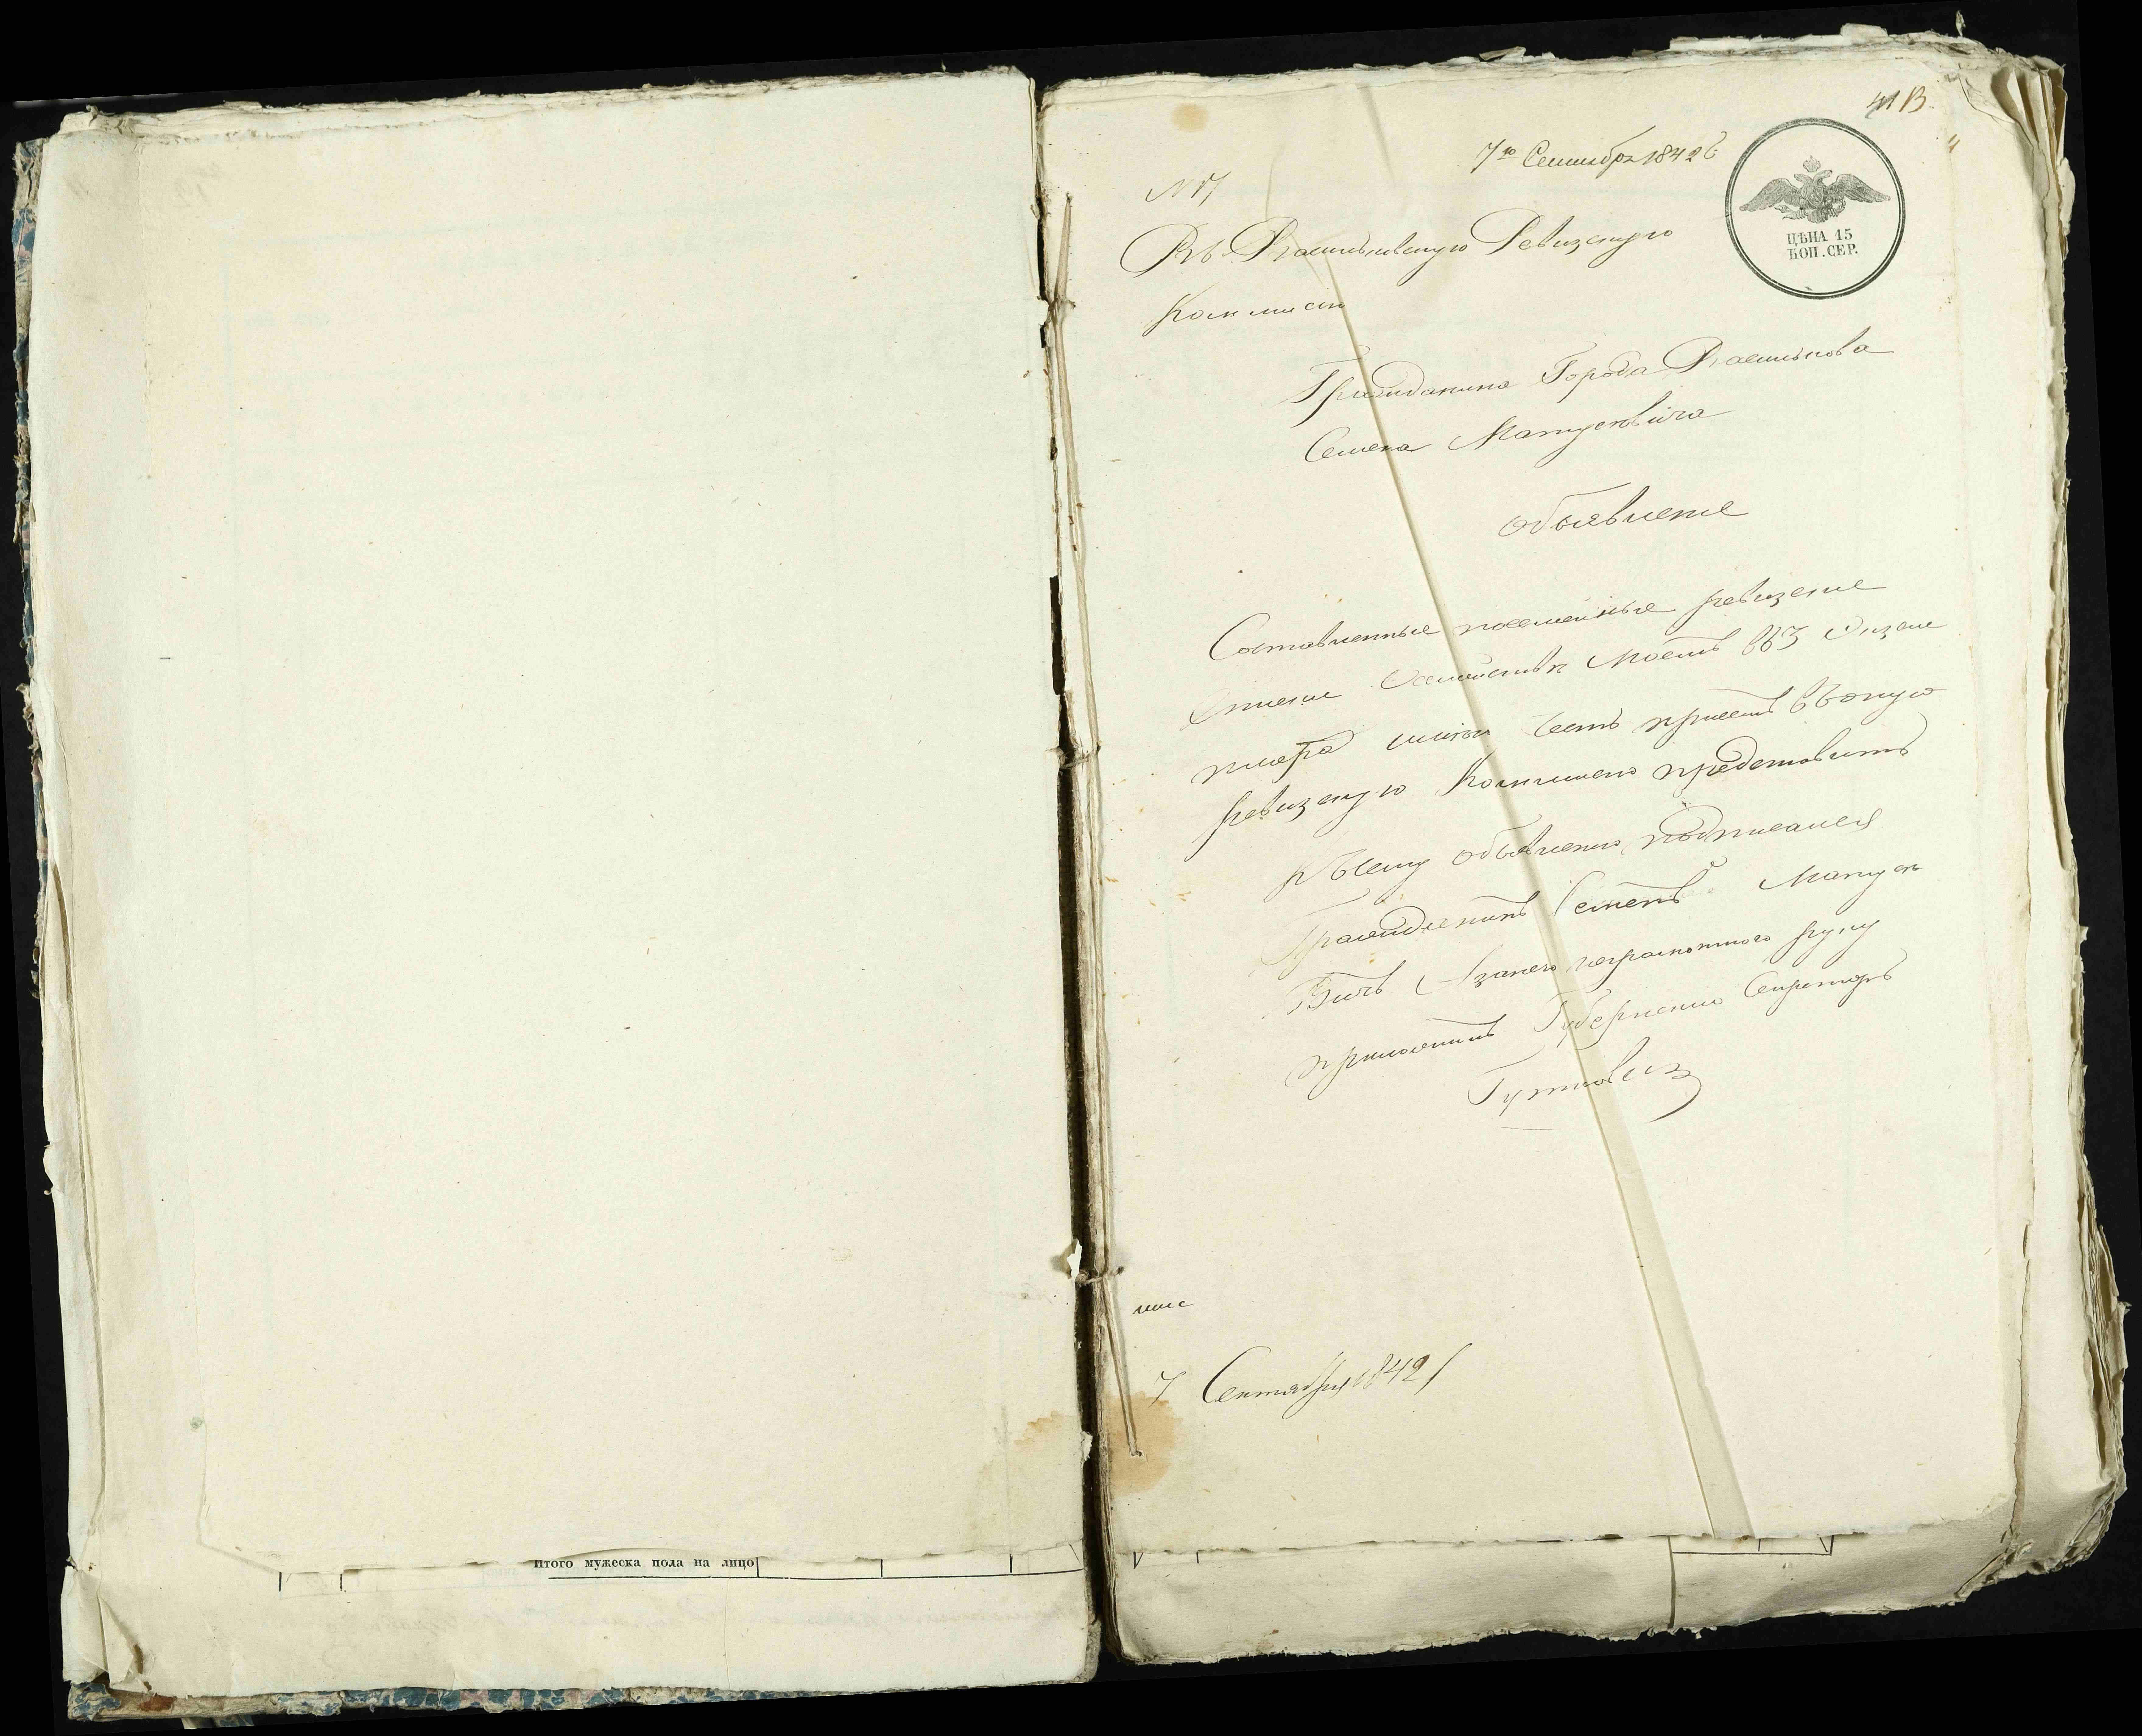 Итого мужеска пола на лицо
41 В
7го Сентября 1842 г
№ 17
ЦѢНА 15
КОП. СЕР.
Въ Васильковскую Ревизскую
Коммисію
Гражданина Города Василькова
Семена Матусевича
Объявленіе
Составленные посемейные ревизскіе
Списки Семейства Моего въ
имею честь при семъ въ оную
ревизскую Коммисію представить
Къ сему объявленію подписался
Гражданинъ Семенъ Матусе
Вичъ А за него неграмотного руку
приложилъ Губернскій Секретарь
7 Сентября 1842 г